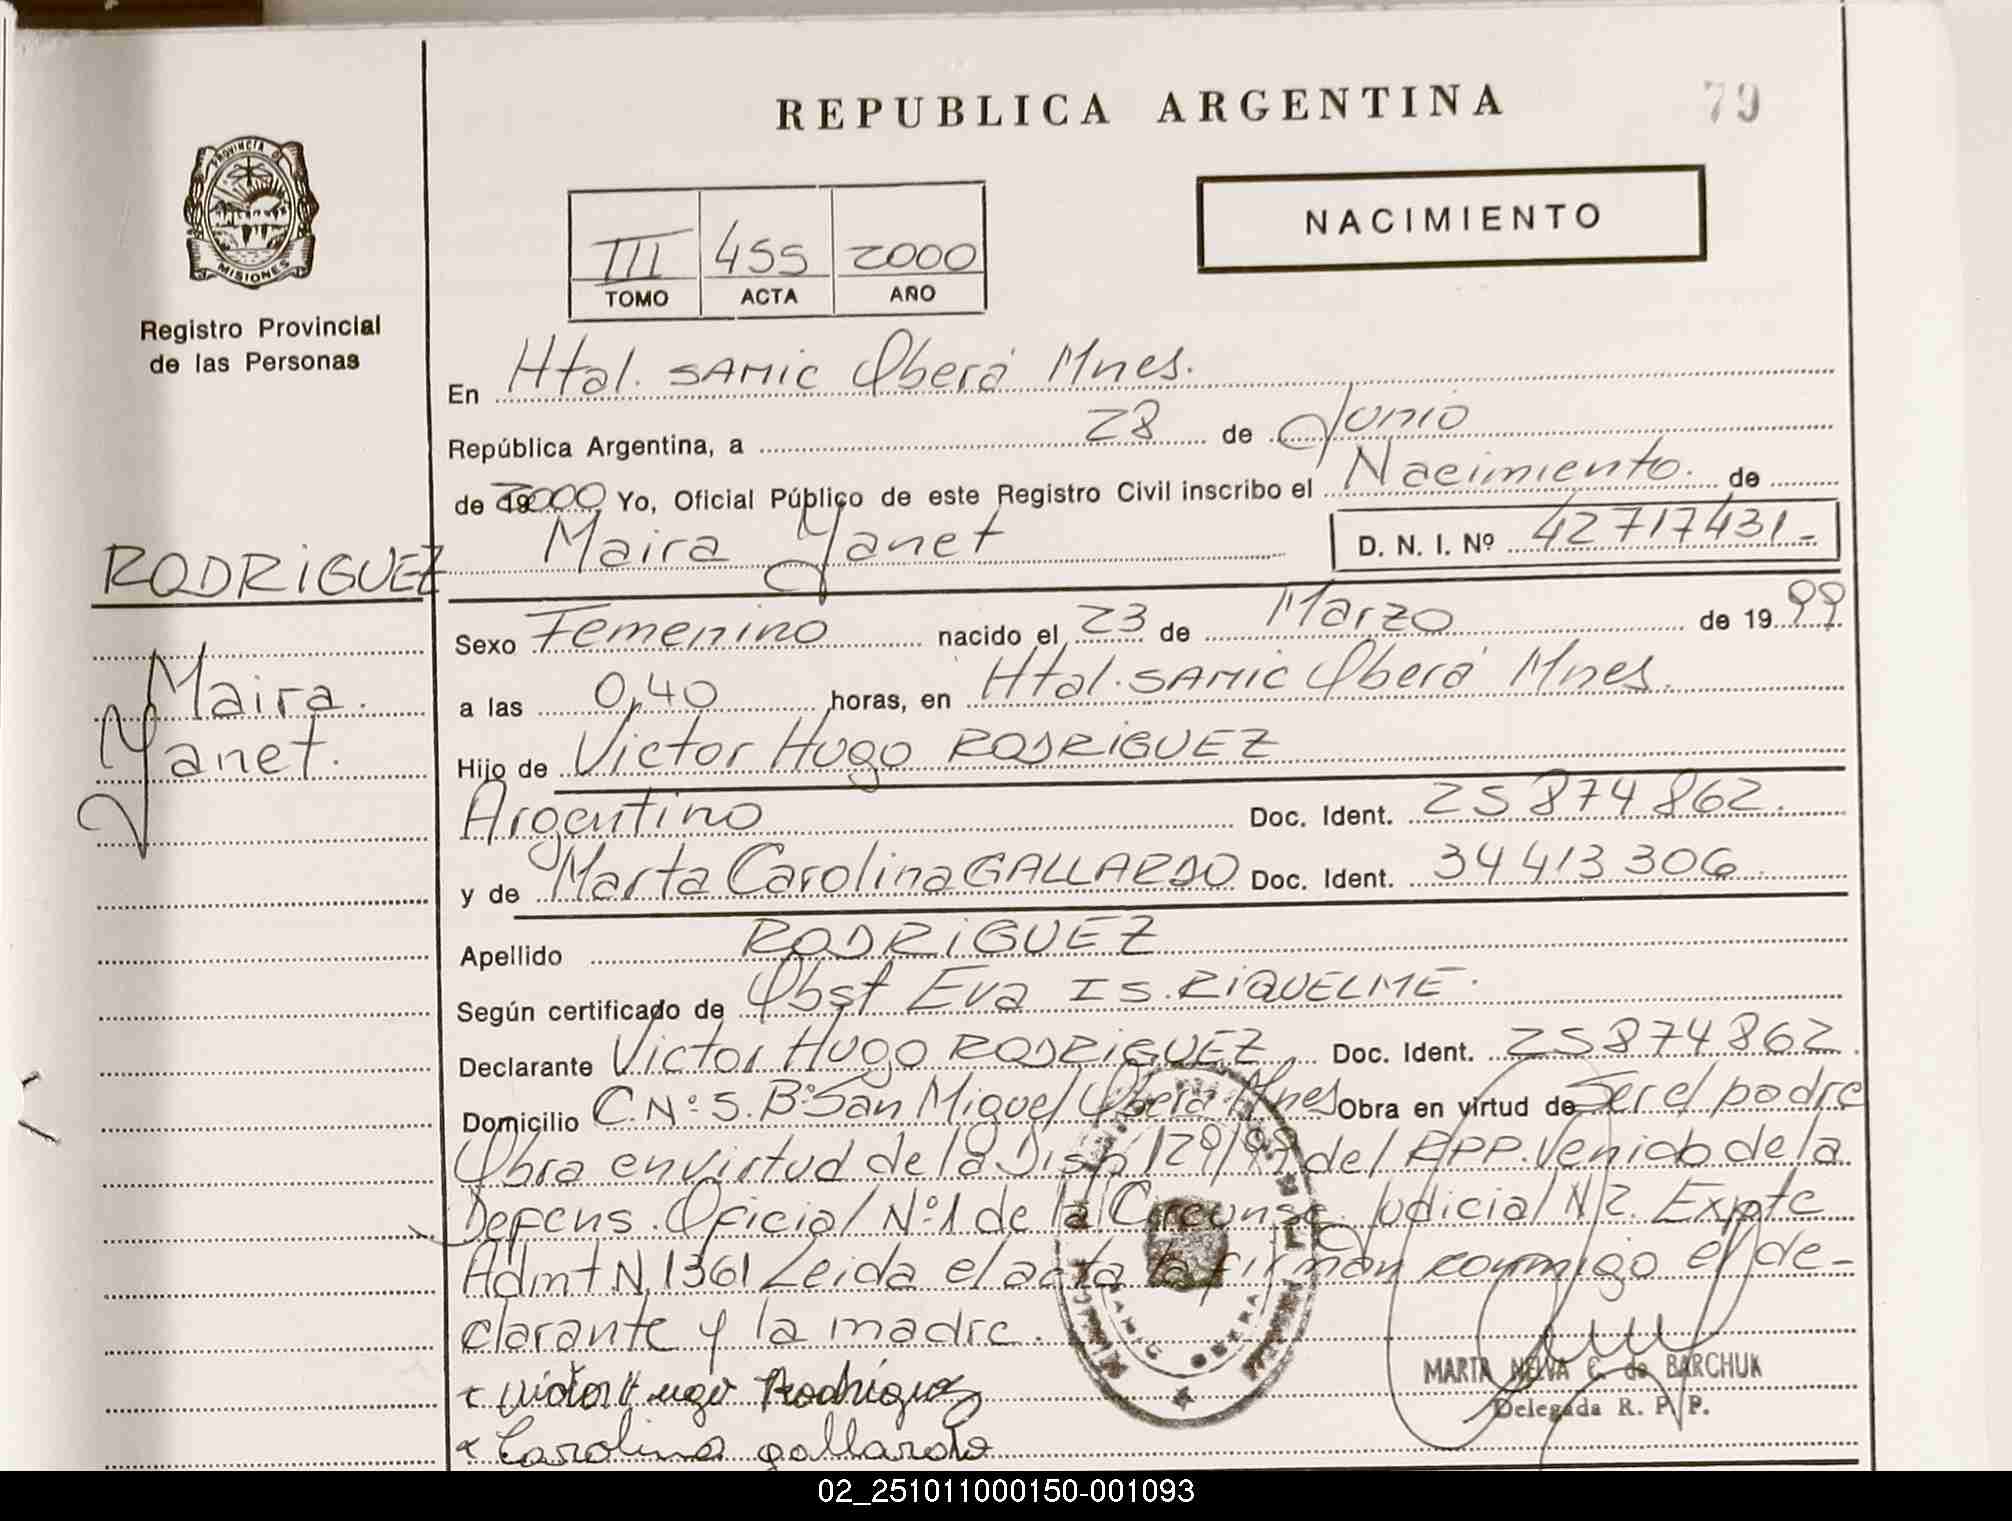 REPUBLICA ARGENTINA
79
PROVINCIA D
MISIONES
Registro Provincial
de las Personas
III 455 2000
TOMO ACTA AÑO
NACIMIENTO
En Htal. SAMIC Oberá Mnes.
República Argentina, a 28 de Junio
de 2000 Yo, Oficial Público de este Registro Civil inscribo el Nacimiento. de
Maira Yanet D. N. I. Nº 42717431-
RODRIGUEZ
Maira.
Yanet.
Sexo Femenino nacido el 23 de Marzo de 1999
a las 0,40 horas, en Htal. SAMIC Oberá Mnes.
Hijo de Victor Hugo RODRIGUEZ
Argentino Doc. Ident. 25 874 862.
y de Marta Carolina GALLARDO Doc. Ident. 34 413 306
Apellido RODRIGUEZ
Según certificado de Obst Eva IS. RIQUELME.
Declarante Victor Hugo RODRIGUEZ Doc. Ident. 25874862
Domicilio C.Nº 5. Bº San Miguel Oberá Mnes Obra en virtud de Ser el padre
Obra en virtud de la Disp 129/99 del RPP. Venido de la
Defens. Oficial Nº1 de la Circunsc. Judicial N 2. Expte
Admt N 1361 Leida el acta la firman conmigo el de-
clarante y la madre.
x Victor Hugo Rodriguez
x Carolina gallardo
MARTA NELVA C. de BARCHUK
Delegada R. P. P.
OBERA
02_251011000150-001093